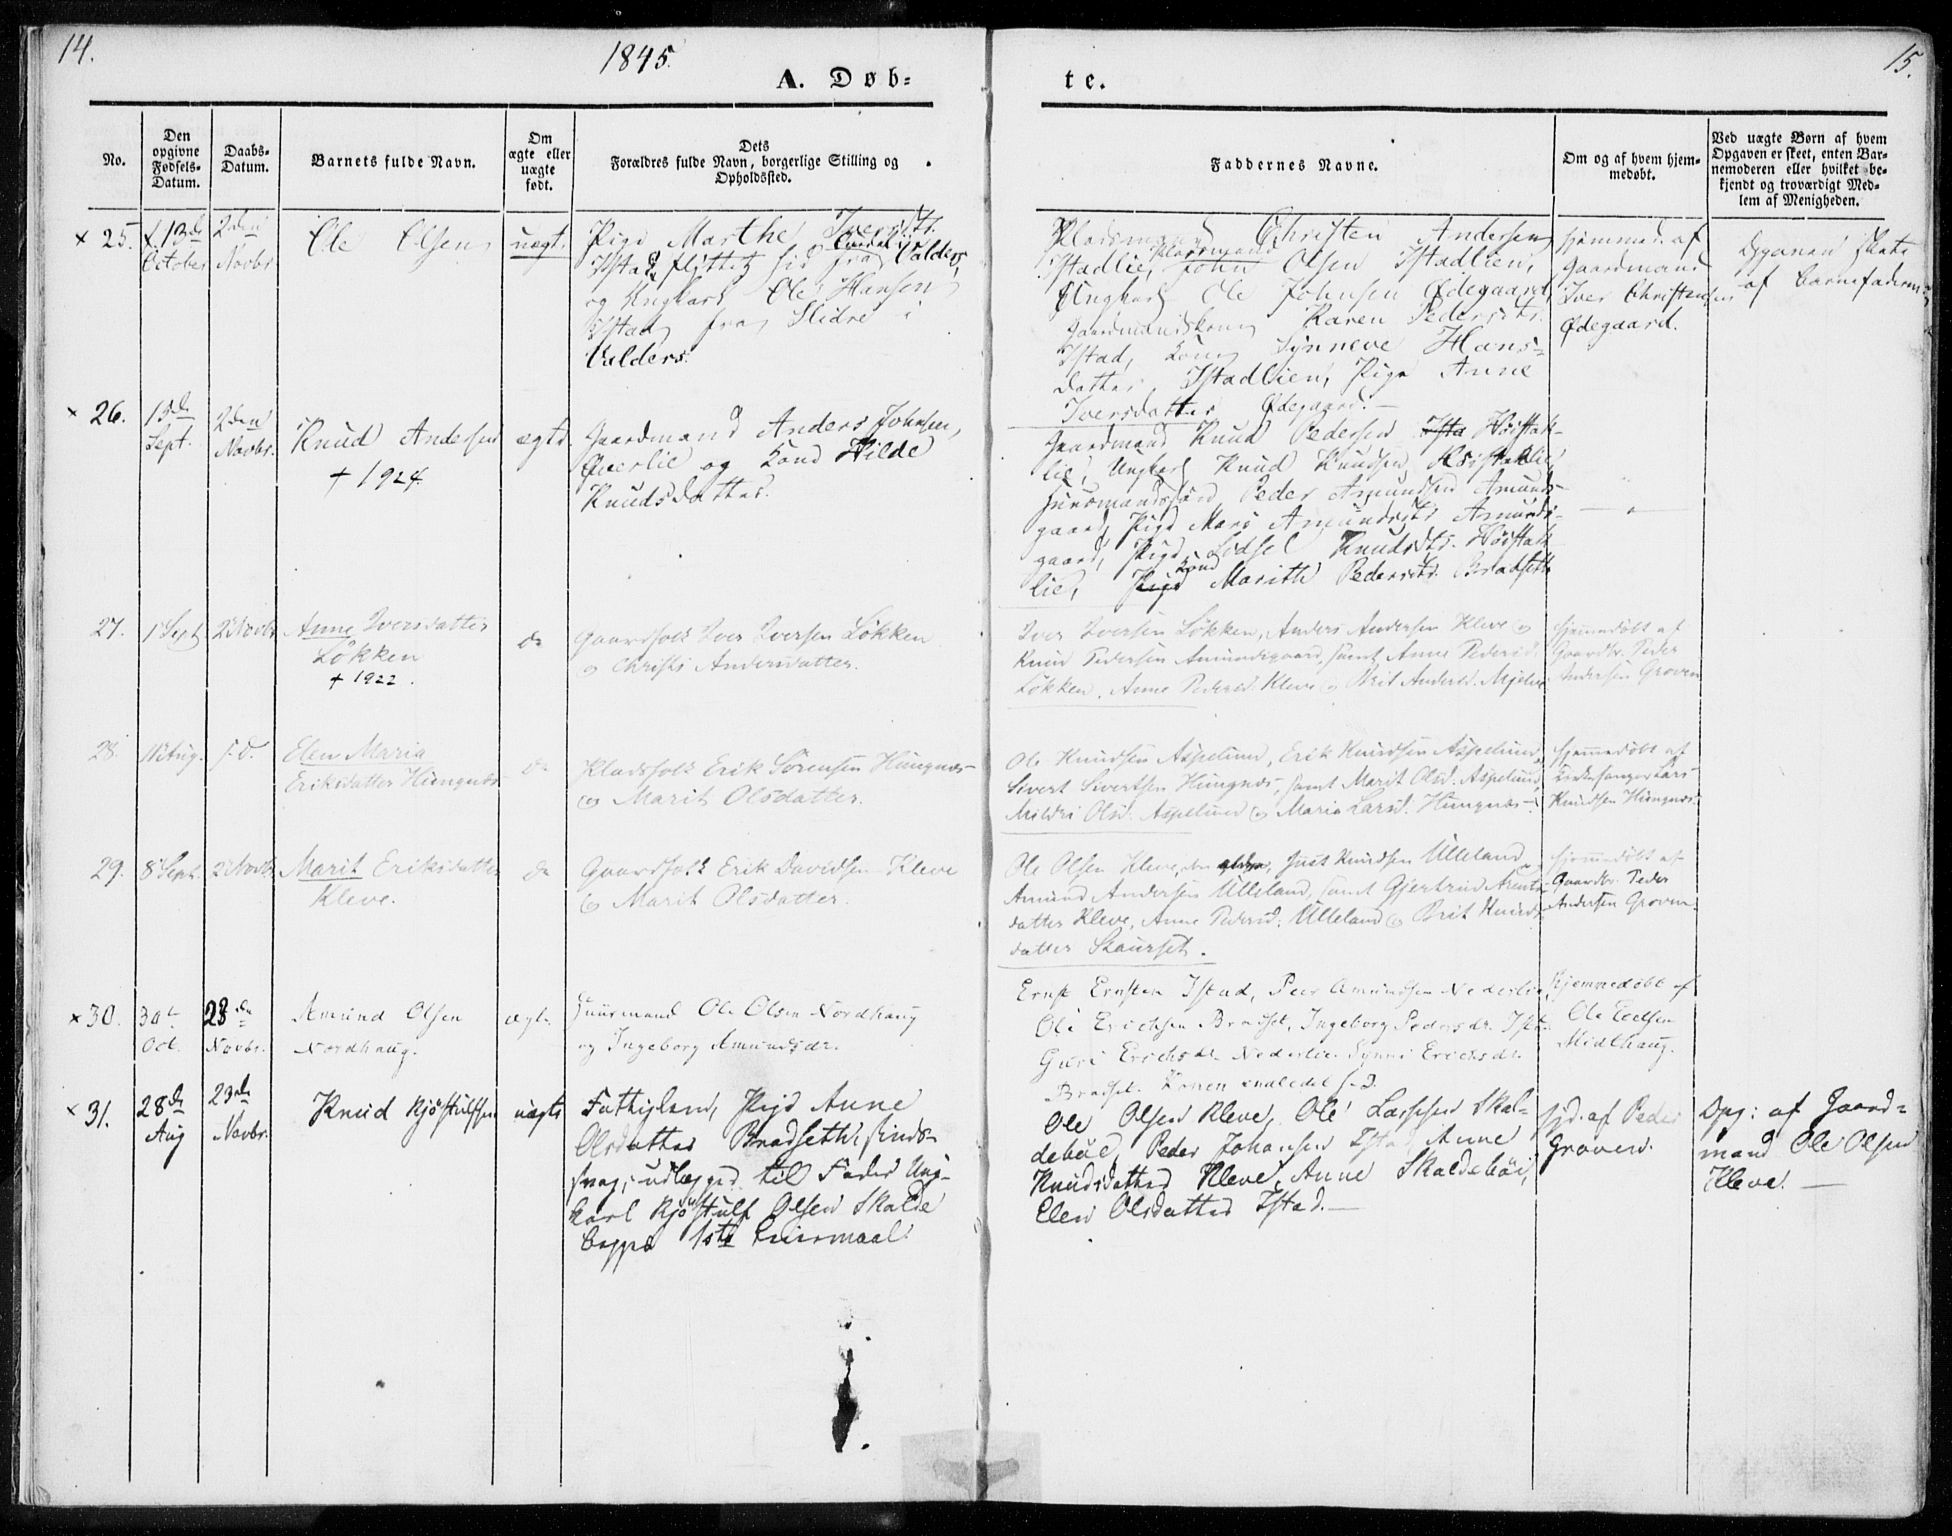 14.
1845.
15.
A. Døb-
te.
No.
Den
opgivne
Fødsels-
Datum.
Daabs-
Datum.
Barnets fulde Navn.
Om
ægte eller
uægte
født.
Dets
Forældres fulde Navn, borgerlige Stilling og
Opholdssted.
Faddernes Navne.
Om og af hvem hjem-
medøbt.
Ved uægte Børn af hvem
Opgaven er skeet, enten Bar-
nemoderen eller hvilket be-
kjendt og troværdigt Med-
lem af Menigheden.
× 25.
13de
October
2den
Novbr
Ole Olsen
uægt.
Pige Marthe Iversdtr.
Istad flyttet hid fra Valders,
og Ungkarl Ole Hansen
Istad fra Slidre i
Valders.
Pladsmand Christen Andersen
Istadlie, Pladsmand John Olsen Istadlien,
Ungkarl Ole Johnsen Ødegaard,
Gaardmandskone Karen Pedersdtr.
Istad, Kone Synneve Hans-
datter Istadlien, Pige Anne
Iversdatter Ødegaard.
hjemmed. af
Gaardmand
Iver Christensen
Ødegaard.
Opgaven skete
af Barnefaderen
× 26.
15de
Sept.
2den
Novbr.
Knud Andersen
+ 1924.
ægte
Gaardmand Anders Johnsen,
Øverlie og Kone Hilde
Knudsdatter.
Gaardmand Knud Pedersen Ista Höistak-
lie, Ungkarl Knud Knudsen Höistaklie,
Peder Amundsen Amunds-
gaard, Pige Mari Amundsdtr Amunds-
gaard, Pige Lidsel Knudsdtr. Höistak
lie, Pige Kone Marith Pedersdtr. Bradseth
27.
1 Sept
2 Novbr
Anne Iversdatter
Lökken
+ 1922.
do
Gaardfolk Iver Iversen Lökken
og Christi Andersdatter.
Iver Iversen Lökken, Anders Andersen Kleve og
Knud Pedersen Amundsgaard, samt Anne Pedersd.
Lökken, Anne Pedersd. Kleve og Brit Andersd. Mjelve
hjemmedöbt af
Gaardbr. Peder
Andersen Groven
28.
Aug.
s.d.
Elen Maria
Eriksdatter Hungnes
do
Pladsfolk Erik Sörensen Hungnes
og Marit Olsdatter.
Ole Knudsen Aspelund, Erik Knudsen Aspelund,
Sivert Sivertsen Hungnes, samt Marit Olsd. Aspelund,
Mildri Olsd. Aspelund og Maria Larsd. Hungnes.
hjemmedöbt af
Kirkesanger Lars
Knudsen Hungnes.
29.
8 Sept.
2 Novbr
Marit Eriksdatter
Kleve.
do
Gaardfolk Erik Davidsen Kleve
og Marit Olsdatter.
Ole Olsen Kleve, den ældre, Just Knudsen Ulleland,
Amund Andersen Ulleland, samt Gjertrud Arents-
datter Kleve, Anne Pedersd. Ulleland og Brit Knuds-
datter Skaurset.
hjemmedöbt af
Gaardbr. Peder
Andersen Groven
× 30.
30te
Oct.
23de
Novbr.
Amund Olsen
Nordhaug.
ægte
Huusmand Ole Olsen Nordhaug
og Ingeborg Amundsdr.
Ernst Ernsten Istad, Peer Amundsen Nederlie,
Ole Erichsen Bradset, Ingeborg Pedersdr. Ist.
Guri Erichsdr. Nederlie. Synni Erichsdr.
Bradset. Konen indledet s.D.
Hjemmedöbt af
Ole
Midlhaug.
× 31.
28de
Aug
23de
Novbr.
Knud Kjöstulfsen
uægte
Fattiglem, Pige Anne
Olsdatter Bradseth, sinds-
svag, udlægger til Fader Ung-
karl Kjöstulf Olsen Skalde
1ste Leiermaal.
Ole Olsen Kleve, Ole Larssen Skal-
deböe, Peder Johansen Istad, Anne
Knudsdatter Kleve, Anne Skaldeböe,
Elen Olsdatter Istad.
hjd. af Peder
Groven.
Opg: af Gaard-
mand Ole Olsen
Kleve.